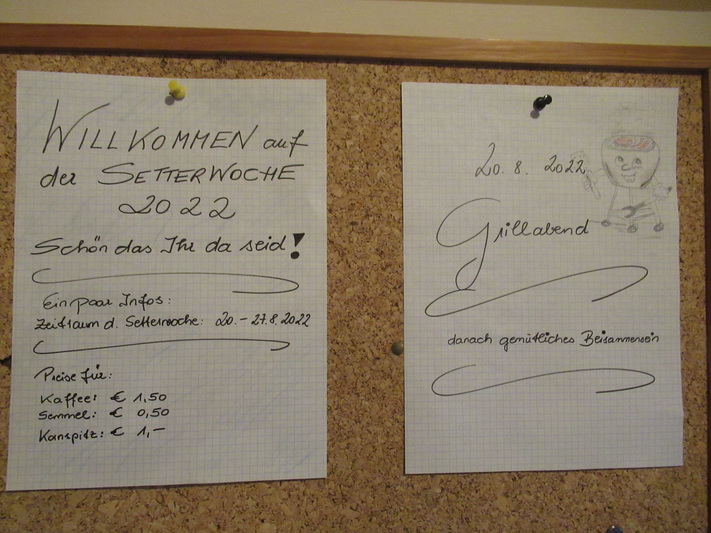 WILLKOMMEN auf
der SETTERWOCHE
2022
Schön das Ihr da seid!
Ein paar Infos:
Zeitraum d. Setterwoche: 20. - 27.8.2022
Preise für:
Kaffee: € 1,50
Semmel: € 0,50
Kanspitz: € 1,-
20. 8. 2022
Grillabend
danach gemütliches Beisammensein